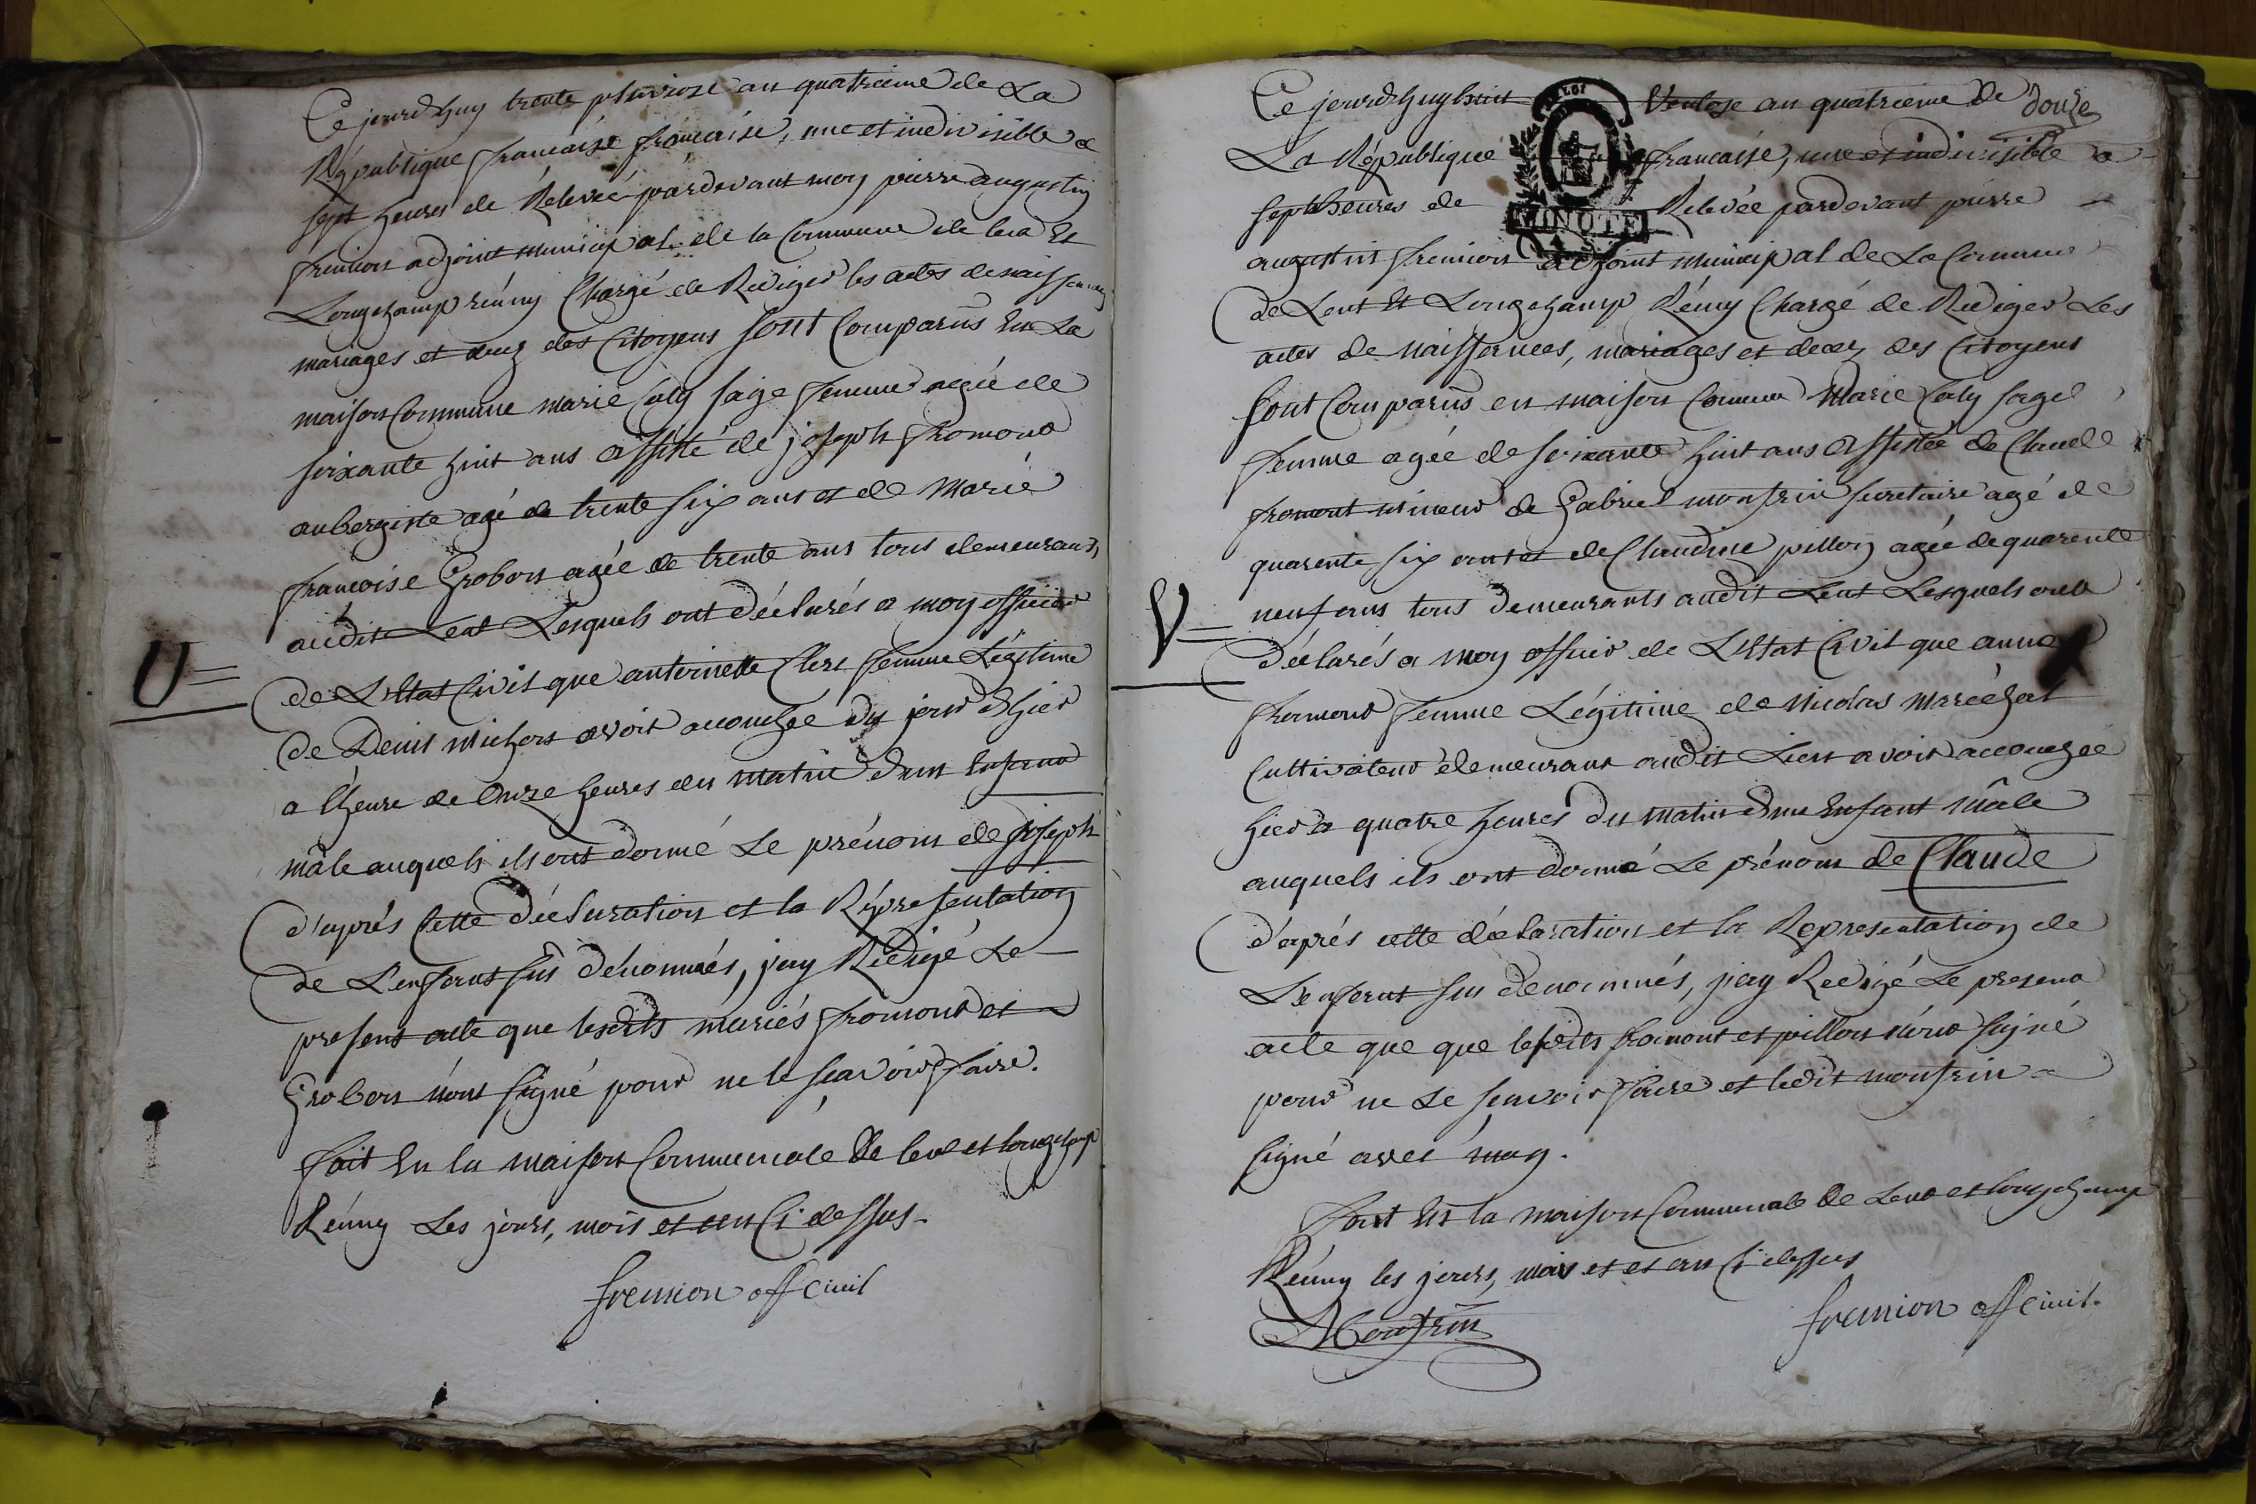 Ce jourdhuy trente pluviose an quatrieme de La
République francaise francaise, une et indivisible a
sept heures de Relevée pardevant moy pierre augustin
fremion adjoint municipal de la Commune de lent Et
Longchamp rémy Chargé de Rediger les actes de naissances
mariages et decez des Citoyens sont Comparus En La
maison Commune marie Caly sage femme agée de
soixante huit ans assisté de joseph fromont
aubergiste agé de trente six ans et de Marie
francoise Grobon agée de trente ans tous demeurants
audit Lent Lesquels ont déclarés a moy officier
U=
de L'Etat Civil que antoinette Clerc femme Légitime
de Denis michon avoit accouchée du jour d'hier
a lheure de Onze heures du matin d'un Enfant
mâle auquels ils ont donné Le prénom de Joseph
d'après Cette Déclaration et la Répresentation
de L'enfant sus dénommés, jay Rédigé Le
present acte que lesdits mariés fromont et
Grobon n'ont signé pour ne le scavoir faire.
fait En la maison Communale de lent et longchamp
Rémy Les jours, mois et an Ci dessus.
fremion off civil
Ce jourdhuy huit Ventose an quatrieme de douze
LOI
La République francaise, une et indivisible a
sept heures de Relevée pardevant pierre
MINUTE
augustin fremion adjoint municipal de La Commune
de Lent Et Longchamp Rémy Chargé de Rediger Les
actes de naissances, mariages et decez des Citoyens
sont Comparus en maison Commune Marie Caly sage
femme agée de soixante huit ans Assistée de Claude
fromont mineur de Gabriel monfrin secretaire agé de
quarente six ans et de Claudine pillon agée de quarente
neuf ans tous demeurants audit Lent Lesquels ont
V=
déclarés a moy officier de L'Etat Civil que anne
fromont femme Légitime de Nicolas Maréchal
Cultivateur demeurant audit Lieu avoir accouchée
hier a quatre heures du matin d'un Enfant mâle
auquels ils ont donné Le prénom de Claude
d'après cette déclaration et la Representation de
L'enfant sus denommés, jay Redigé Le present
acte que que lesdits fromont et pillon n'ont signé
pour ne Le scavoir faire et ledit monfrin a
signé avec moy.
fait En la maison Communale de Lent et longchamp
Rémy les jours, mois et et an Ci dessus
Monfrin
fremion off civil.